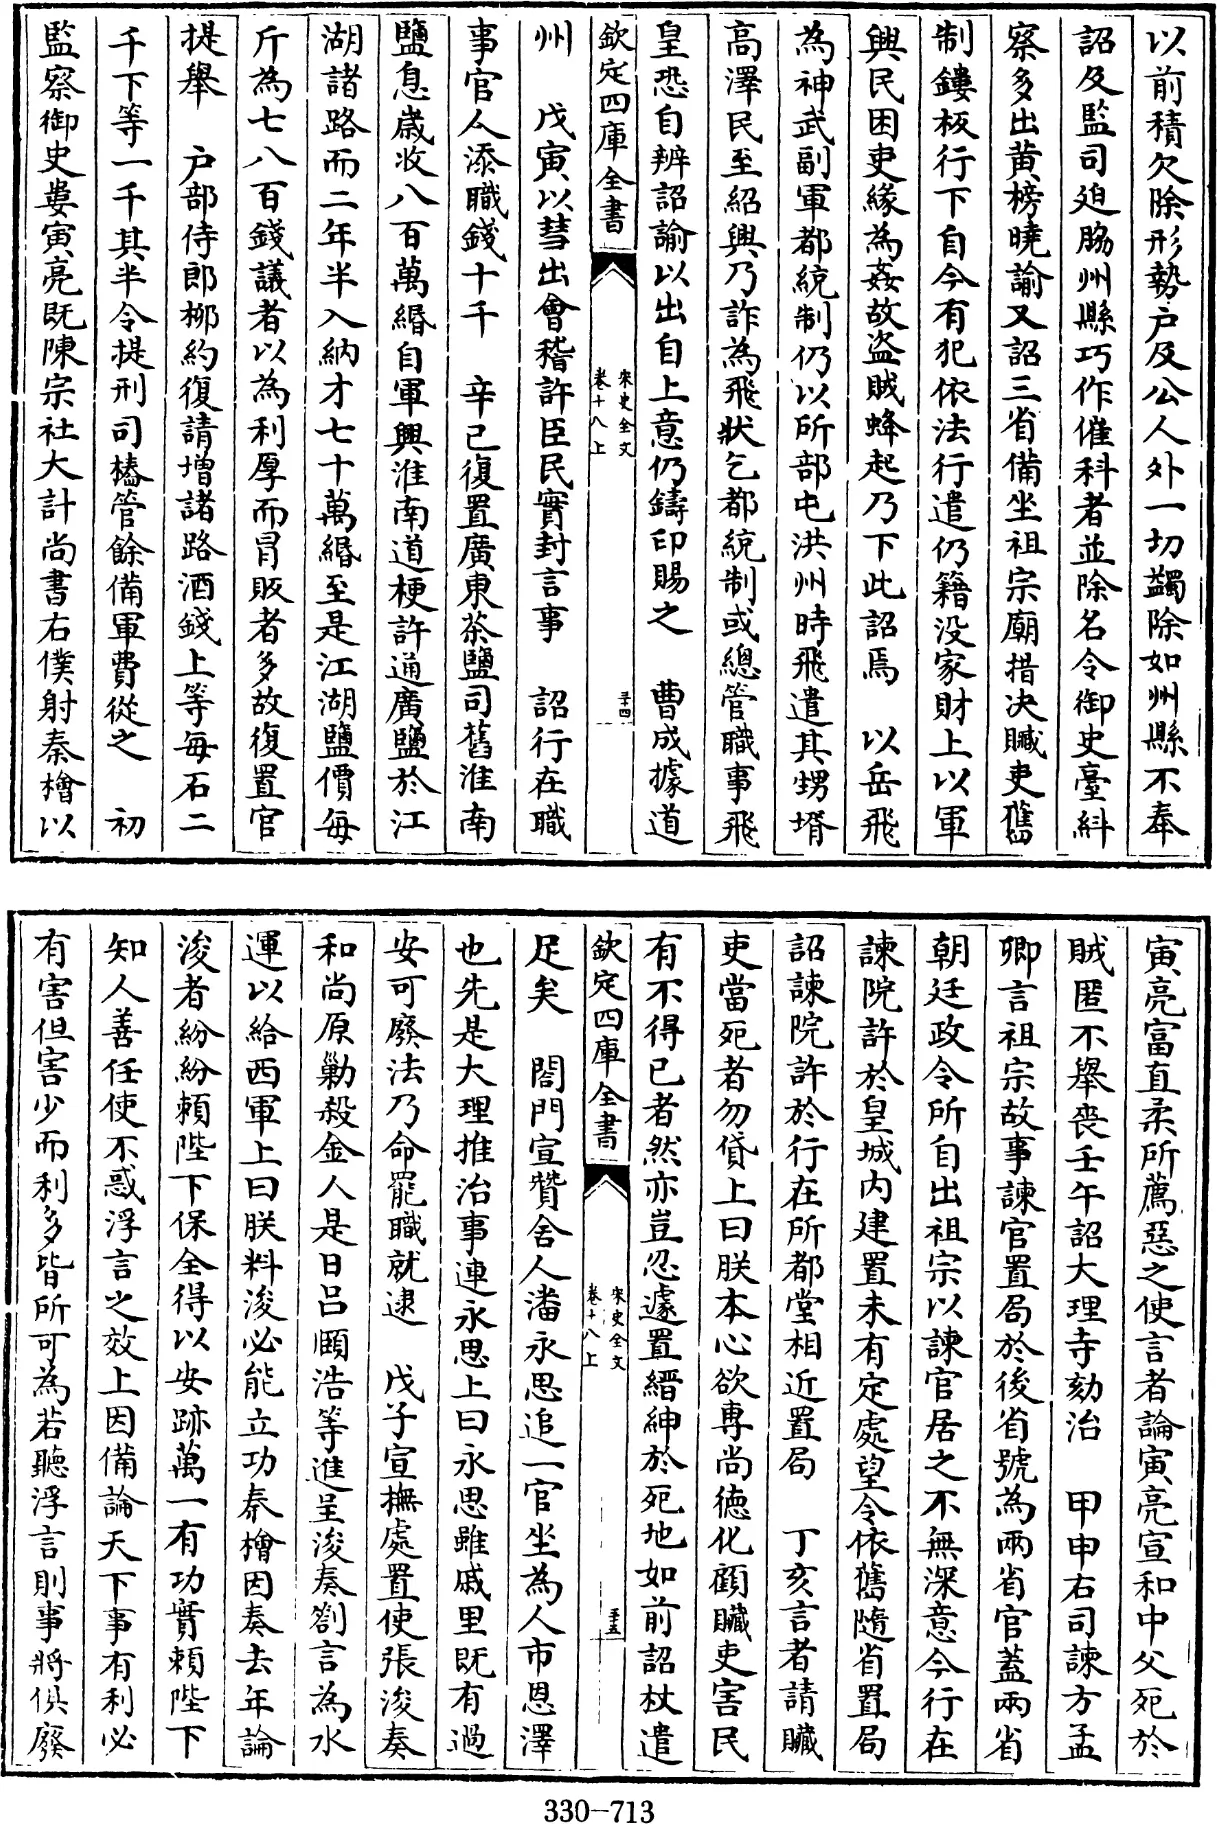 以前積欠除形勢户及公人外一切蠲除如州縣不奉
詔及監司廹脇州縣巧作催科者並除名令御史臺紏
察多出黄榜曉諭又詔三省備坐祖宗廟措决贓吏舊
制鏤板行下自今有犯依法行遣仍籍没家財上以軍
興民困吏緣為姦故盗賊蜂起乃下此詔焉　以岳飛
為神武副軍都統制仍以所部屯洪州時飛遣其甥壻
高澤民至紹興乃詐為飛狀乞都統制或總管職事飛
皇恐自辨詔諭以出自上意仍鑄印賜之　曹成據道
欽定四庫全書
宋史全文
卷十八上
三十四
州　戊寅以彗出會稽許臣民實封言事　詔行在職
事官人添職錢十千　辛已復置廣東茶鹽司舊淮南
鹽息歲收八百萬緡自軍興淮南道梗許通廣鹽於江
湖諸路而二年半入納才七十萬緡至是江湖鹽價每
斤為七八百錢議者以為利厚而冒販者多故復置官
提舉　户部侍郎栁約復請增諸路酒錢上等每石二
千下等一千其半令提刑司樁管餘備軍費從之　初
監察御史婁寅亮既陳宗社大計尚書右僕射秦檜以
寅亮富直柔所薦惡之使言者論寅亮宣和中父死於
賊匿不舉喪壬午詔大理寺劾治　甲申右司諫方孟
卿言祖宗故事諫官置局於後省號為兩省官蓋兩省
朝廷政令所自出祖宗以諫官居之不無深意今行在
諫院許於皇城内建置未有定處望令依舊隨省置局
詔諫院許於行在所都堂相近置局　丁亥言者請贓
吏當死者勿貸上曰朕本心欲專尚德化顧贓吏害民
有不得已者然亦豈忍遽置縉紳於死地如前詔杖遣
欽定四庫全書
宋史全文
卷十八上
三十五
足矣　閤門宣贊舍人潘永思追一官坐為人市恩澤
也先是大理推治事連永思上曰永思雖戚里既有過
安可廢法乃命罷職就逮　戊子宣撫處置使張浚奏
和尚原勦殺金人是日吕頤浩等進呈浚奏劄言為水
運以給西軍上曰朕料浚必能立功秦檜因奏去年論
浚者紛紛賴陛下保全得以安跡萬一有功實賴陛下
知人善任使不惑浮言之效上因備論天下事有利必
有害但害少而利多皆所可為若聽浮言則事將俱廢
330-713